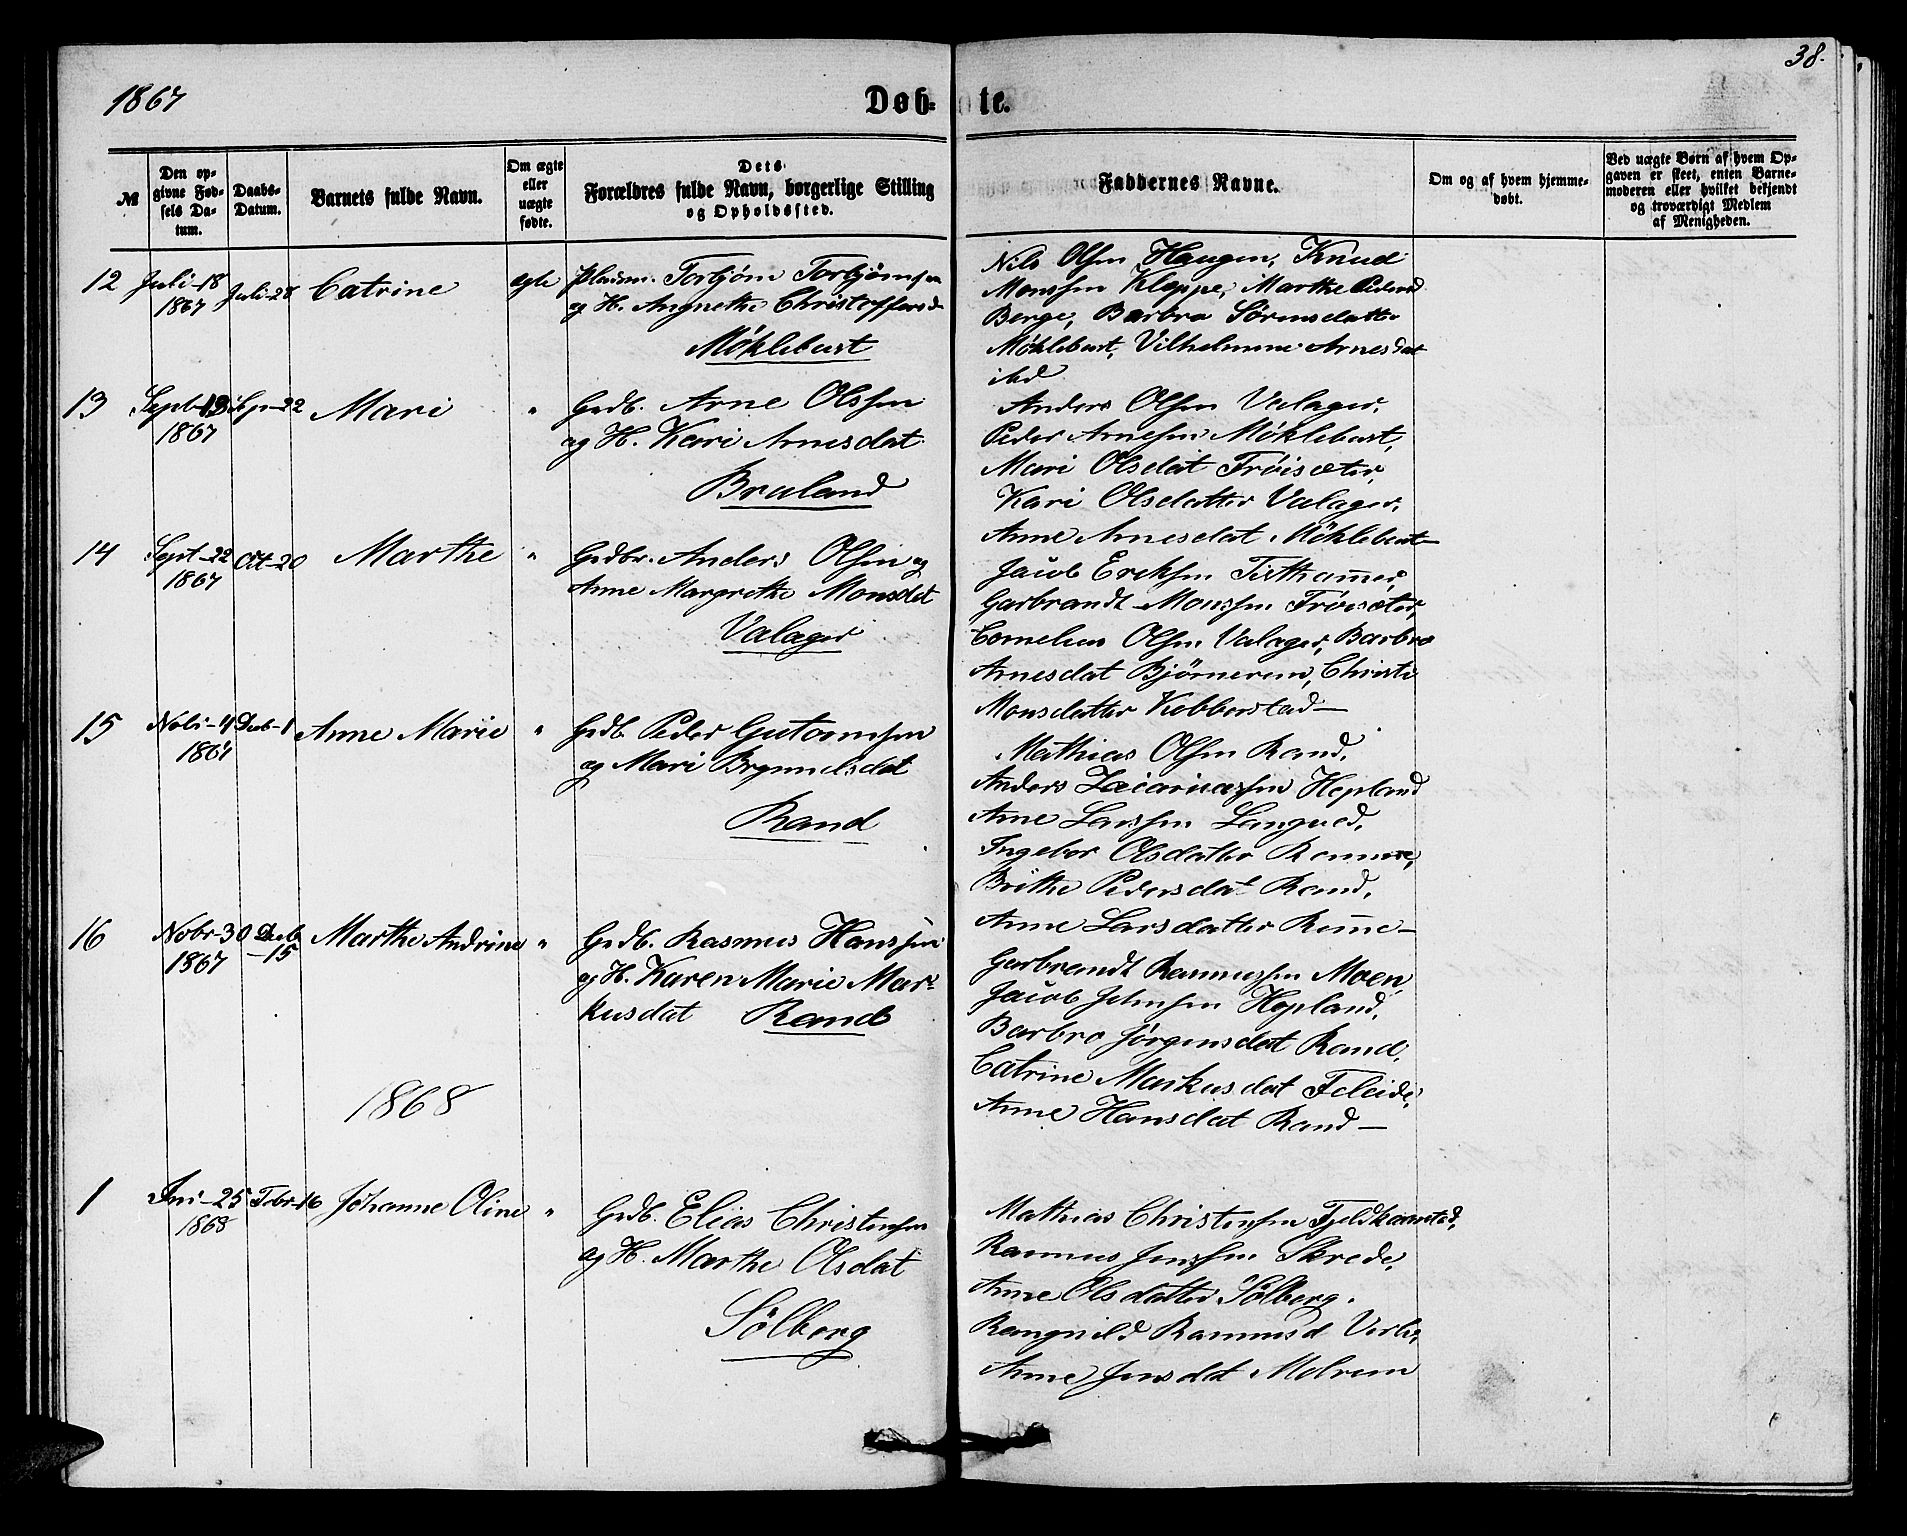 38.
1867
Døb- te.
№
Den op-
givne Fød-
sels Da-
tum.
Daabs-
Datum.
Barnets fulde Navn.
Om ægte
eller
uægte
fødte.
Dets
Forældres fulde Navn, borgerlige Stilling
og Opholdssted.
Faddernes Navne.
Om og af hvem hjemme-
døbt.
Ved uægte Børn af hvem Op-
gaven er skeet, enten Barne-
moderen eller hvilket bekjendt
og troværdigt Medlem
af Menigheden.
12 Juli-18 1867 Juli-28 Catrine ægte
Torbjørn Torbjørnsen
og H. Angnethe Christoffersd
Møklebust
Nils Olsen Haugen, Knud
Monssen Kleppe, Marthe Pedersd
Berge, Barbro Sørensdatter
Møklebust, Vilhelmine Arnesdat
ibd
13 Sept-13 1867 Sp-22 Mari "
Grdb. Arne Olssen
og H. Kari Arnesdat
Bruland
Anders Olsen Valager,
Peder Arnesen Møklebust,
Mari Olsdat Frøisæter,
Kari Olsdatter Valager,
Anne Arnesdat Møklebust-
14 Sept-22 1867 Oct-20 Marthe "
Grdbr. Anders Olsen og
Anne Margrethe Monsdat
Valager
Jacob Eriksen
Garbrandt Monssen Frøisæter,
Cornelius Olsen Valager, Barbro
Arnesdat Bjørnereim, Christi
Monsdatter Kobberstad-
15 1867 Anne Marie "
Grdb. Peder Gutormsen
og Mari Brynnelsdat
Rand
Mathias Olsen Rand,
Anders Zacariassen Hopland
Arne Larssen Langved,
Ingebor Olsdatter
Brithe Pedersdat Rand,
Anne Larsdatter
16 Nobr-30 1867 Decb -15 Marthe Andrine "
Grdb. Rasmus Hanssen
og H. Karen Marie Mar-
kusdat Rand
Garbrandt Rasmussen Moen,
Jacob Johnsen Hopland,
Barbro Jørgensdat Rand,
Catrine Markusdat Fleide,
Anne Hansdat Rand-
1868
1 Jni-25 1868 Febr-16 Johanne Oline "
Grdb. Elias Christensen
og H. Marthe Olsdat
Sölberg
Mathias Christensen
Rasmus Jenssen Skrede,
Anne Olsdatter Sölberg.
Rangnild Rasmusd
Anne Jensdat